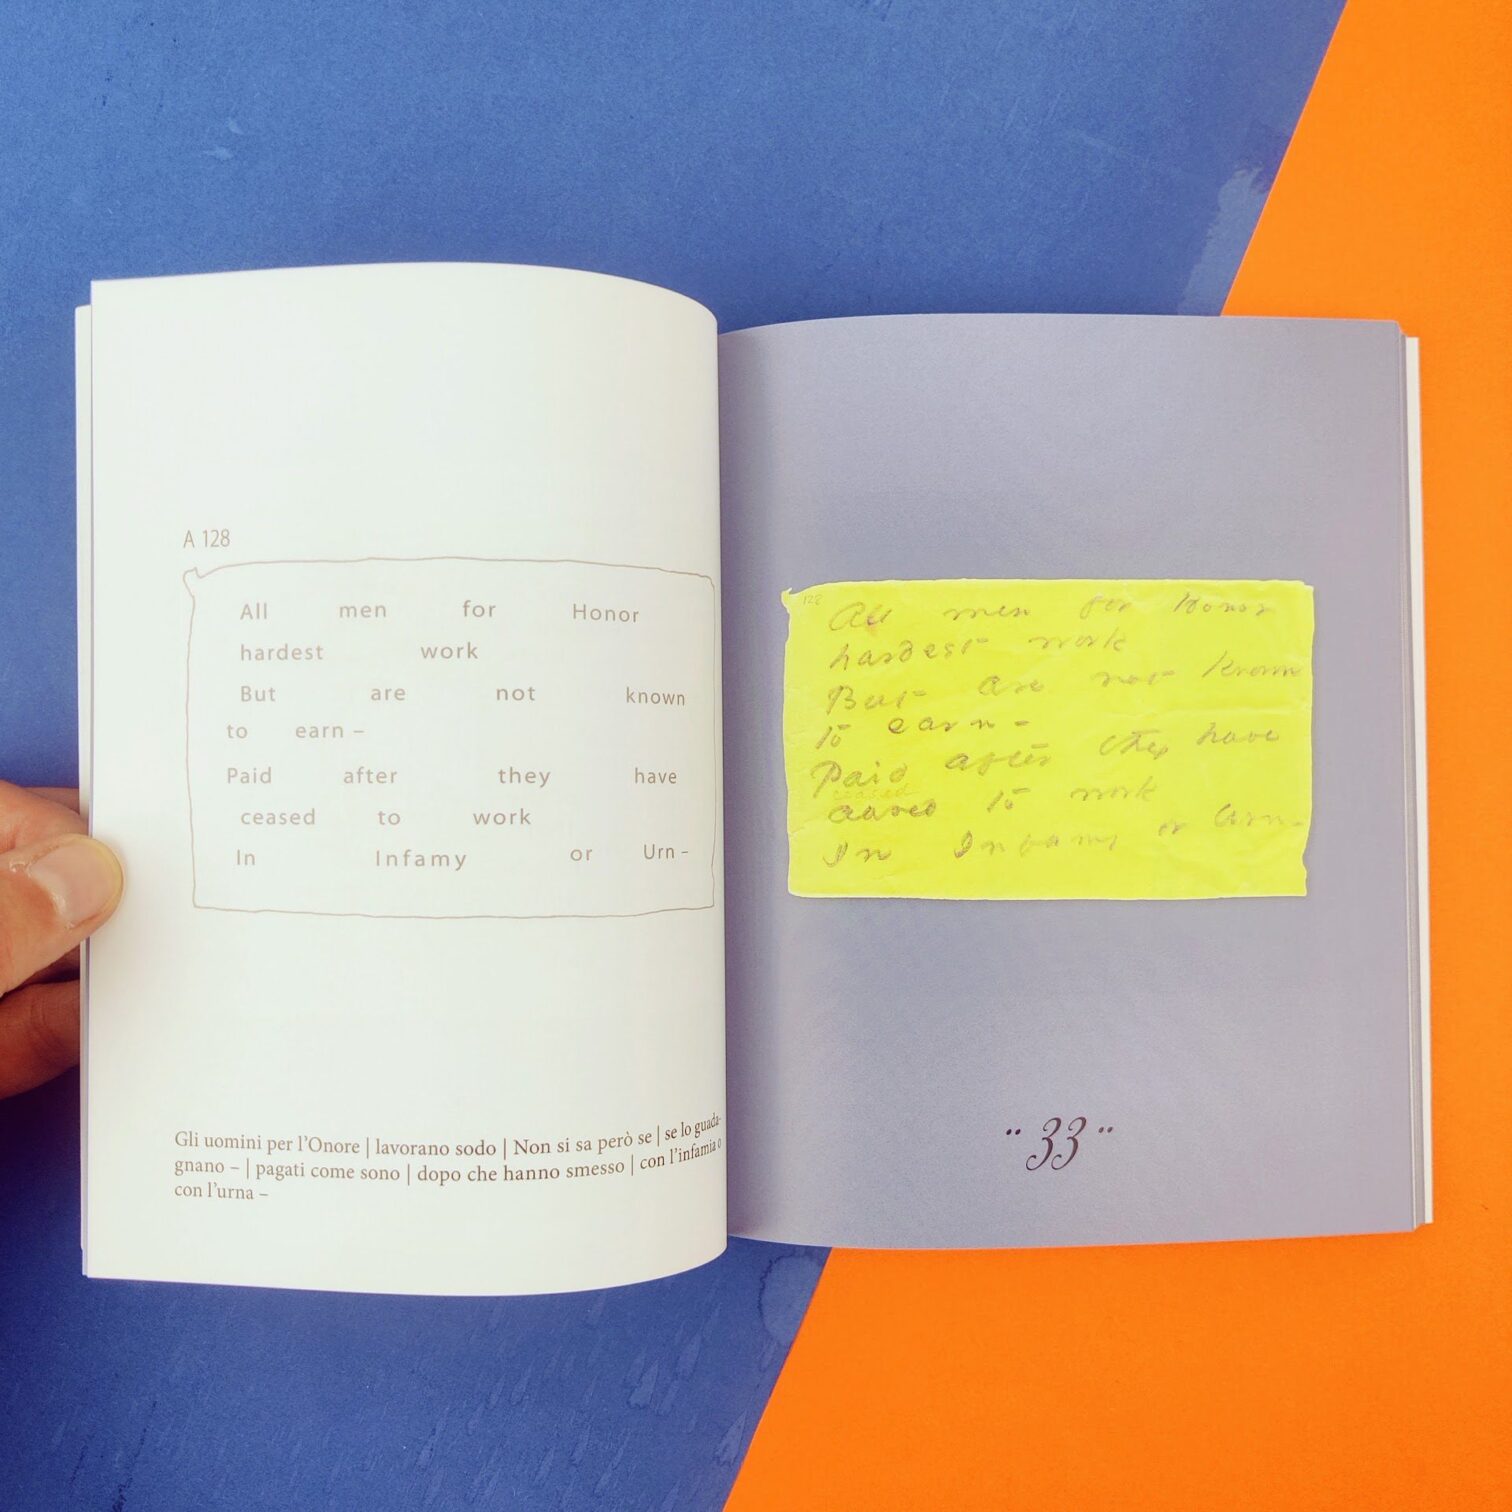 A 128
All men for Honor
hardest work
But are not known
to earn –
Paid after they have
ceased to work
In Infamy or Urn –
Gli uomini per l'Onore | lavorano sodo | Non si sa però se | se lo guada-
gnano – | pagati come sono | dopo che hanno smesso | con l'infamia o
con l'urna –
128
All men for Honor
hardest work
But are not known
to earn –
Paid after they have
ceased
ceased to work
In Infamy or Urn –
" 33 "